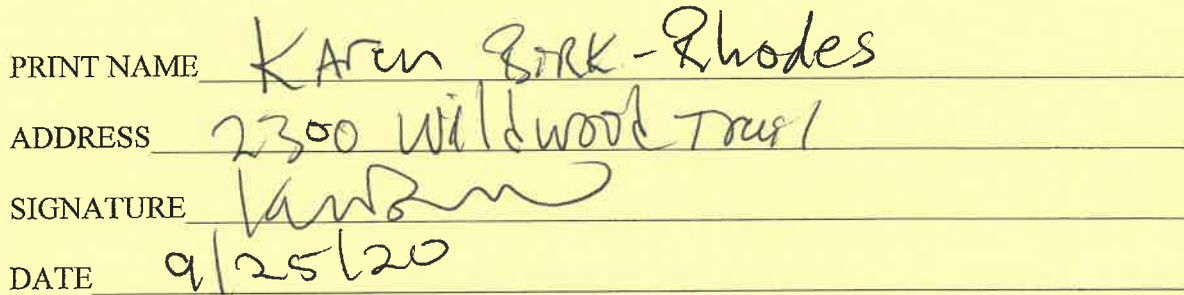 PRINT NAME Karen Birk-Rhodes
ADDRESS 2300 Wildwood Trail
SIGNATURE
DATE 9/25/20